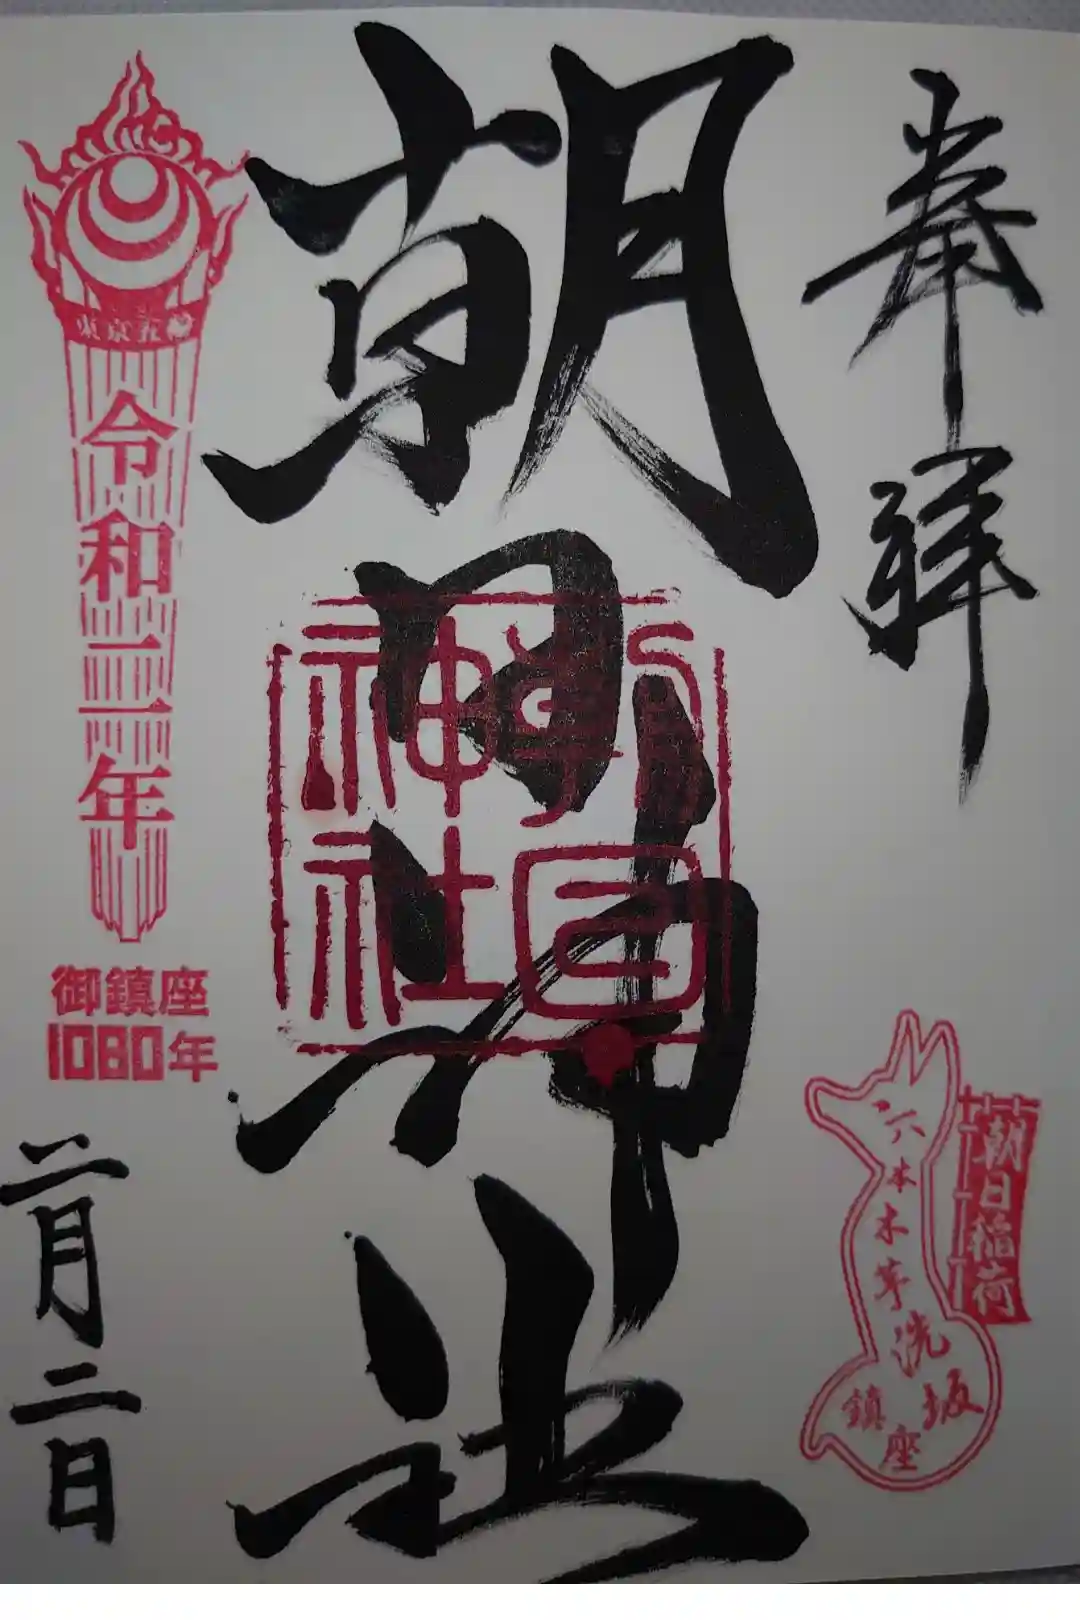 奉拝
朝日神社
朝日神社
朝日稲荷
六本木芋洗坂鎮座
東京五輪
令和二年
御鎮座
1080年
二月二日